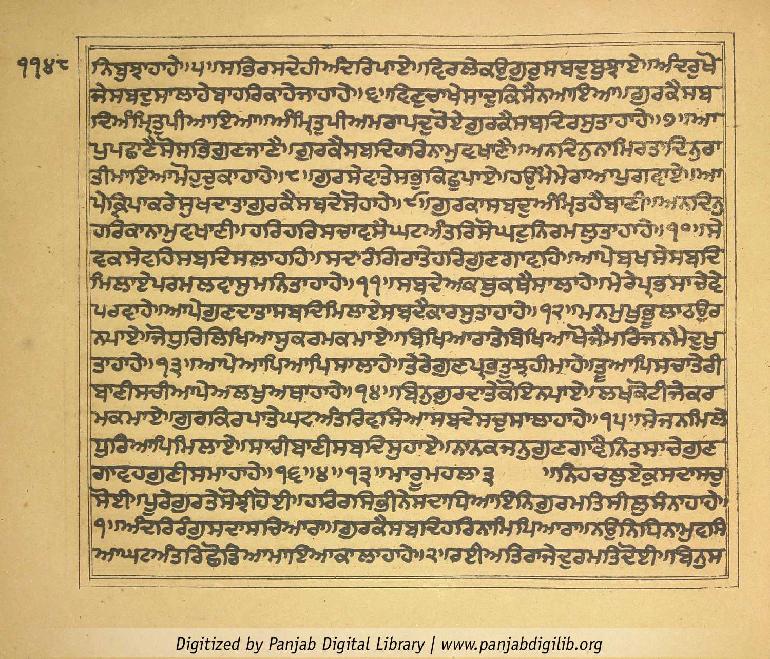 ੧੧੪੮
ਨਿਬੁਝਾਹਾਹੇ॥੫॥ਸਤਿਰਸਦੇਹੀਅੰਦਰਿਪਾਏ॥ਵਿਰਲੇਕਉਗੁਰੁਸਬਦੁਬੁਝਾਏ॥ਅੰਦਰੁਖੋ
ਜੇਸਬਦੁਸਾਲਾਹੇਬਾਹਰਿਕਾਹੇਜਾਹਾਹੇ॥੬॥ਵਿਣੁਚਾਖੇਸਾਦੁਕਿਸੈਨਆਇਆ॥ਗੁਰਕੈਸਬ
ਦਿਅੰਮ੍ਰਿਤੁਪੀਆਇਆ॥ਅੰਮ੍ਰਿਤੁਪੀਅਮਰਾਪਦੁਹੋਏਗੁਰਕੈਸਬਦਿਰਸੁਤਾਹਾਹੇ॥੭॥ਆ
ਪੁਪਛਾਣੈਸੋਸਭਿਗੁਣਜਾਣੈ॥ਗੁਰਕੈਸਬਦਿਹਰਿਨਾਮੁਵਖਾਣੈ॥ਅਨਦਿਨੁਨਾਮਿਰਤਾਦਿਨੁਰਾ
ਤੀਮਾਇਆਮੋਹੁਚੁਕਾਹਾਹੇ॥੮॥ਗੁਰਸੇਵਾਤੇਸਭੁਕਿਛੁਪਾਏ॥ਹਉਮੈਮੇਰਾਆਪੁਗਵਾਏ॥ਆ
ਪੇਕ੍ਰਿਪਾਕਰੇਸੁਖਦਾਤਾਗੁਰਕੈਸਬਦੇਸੋਹਾਹੇ॥੯॥ਗੁਰਕਾਸਬਦੁਅੰਮ੍ਰਿਤਹੈਬਾਣੀ॥ਅਨਦਿਨੁ
ਹਰਿਕਾਨਾਮੁਵਖਾਣੀ॥ਹਰਿਹਰਿਸਚਾਵਸੈਘਟਅੰਤਰਿਸੋਘਟੁਨਿਰਮਲੁਤਾਹਾਹੇ॥੧੦॥ਸੇ
ਵਕਸੇਵਹਿਸਬਦਿਸਲਾਹਹਿ॥ਸਦਾਰੰਗਿਰਾਤੇਹਰਿਗੁਣਗਾਵਹਿ॥ਆਪੇਬਖਸੇਸਬਦਿ
ਮਿਲਾਏਪਰਮਲਵਾਸੁਮਨਿਤਾਹਾਹੇ॥੧੧॥ਸਬਦੇਅਕਥੁਕਥੈਸਾਲਾਹੇ॥ਮੇਰੇਪ੍ਰਭਸਾਚੇਵੇ
ਪਰਵਾਹੇ॥ਆਪੇਗੁਣਦਾਤਾਸਬਦਿਮਿਲਾਏਸਬਦੈਕਾਰਸੁਤਾਹਾਹੇ॥੧੨॥ਮਨਮੁਖੁਭੂਲਾਠਉਰ
ਨਪਾਏ॥ਜੋਧੁਰਿਲਿਖਿਆਸੁਕਰਮਕਮਾਏ॥ਬਿਖਿਆਰਾਤੇਬਿਖਿਆਖੋਜੈਮਰਿਜਨਮੈਦੁਖੁ
ਤਾਹਾਹੇ॥੧੩॥ਆਪੇਆਪਿਆਪਿਸਾਲਾਹੇ॥ਤੇਰੇਗੁਣਪ੍ਰਭਤੁਝਹੀਮਾਹੇ॥ਤੂਆਪਿਸਚਾਤੇਰੀ
ਬਾਣੀਸਚੀਆਪੇਅਲਖੁਅਥਾਹਾਹੇ॥੧੪॥ਬਿਨੁਗੁਰਦਾਤੇਕੋਇਨਪਾਏ॥ਲਖਕੋਟੀਜੇਕਰ
ਮਕਮਾਏ॥ਗੁਰਕਿਰਪਾਤੇਘਟਅੰਤਰਿਵਸਿਆਸਬਦੇਸਚੁਸਾਲਾਹਾਹੇ॥੧੫॥ਸੇਜਨਮਿਲੇ
ਧੁਰਿਆਪਿਮਿਲਾਏ॥ਸਾਚੀਬਾਣੀਸਬਦਿਸੁਹਾਏ॥ਨਾਨਕਜਨੁਗੁਣਗਾਵੈਨਿਤਸਾਚੇਗੁਣ
ਗਾਵਹਗੁਣੀਸਮਾਹਾਹੇ॥੧੬॥੪॥੧੩॥ਮਾਰੂਮਹਲਾ੩ ॥ਨਿਹਚਲੁਏਕੁਸਦਾਸਚੁ
ਸੋਈ॥ਪੂਰੇਗੁਰਤੇਸੋਝੀਹੋਈ॥ਹਰਿਰਸਿਭੀਨੇਸਦਾਧਿਆਇਨਿਗੁਰਮਤਿਸੀਲੁਸੰਨਾਹਾਹੇ॥
੧॥ਅੰਦਰਿਰੰਗੁਸਦਾਸਚਿਆਰਾ॥ਗੁਰਕੈਸਬਦਿਹਰਿਨਾਮਿਪਿਆਰਾ॥ਨਉਨਿਧਿਨਾਮੁਵਸਿ
ਆਘਟਅੰਤਰਿਛੋਡਿਆਮਾਇਆਕਾਲਾਹਾਹੇ॥੨॥ਰਈਅਤਿਰਾਜੇਦੁਰਮਤਿਦੋਈ॥ਬਿਨੁਸ
Digitized by Panjab Digital Library | www.panjabdigilib.org